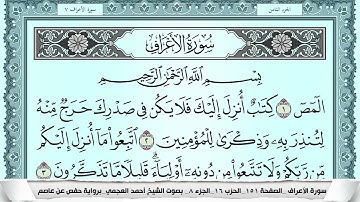 الجزء الثامن
سورة الأعراف ٧
سُورَةُ الأَعْرَافِ
بِسْمِ اللَّهِ الرَّحْمَٰنِ الرَّحِيمِ
الٓمٓصٓ ١ كِتَٰبٌ أُنزِلَ إِلَيْكَ فَلَا يَكُن فِي صَدْرِكَ حَرَجٌ مِّنْهُ
لِتُنذِرَ بِهِۦ وَذِكْرَىٰ لِلْمُؤْمِنِينَ ٢ ٱتَّبِعُوا۟ مَآ أُنزِلَ إِلَيْكُم
مِّن رَّبِّكُمْ وَلَا تَتَّبِعُوا۟ مِن دُونِهِۦٓ أَوْلِيَآءَ ۗ قَلِيلًا مَّا تَذَكَّرُونَ ٣
سورة الأعراف_ الصفحة ١٥١_ الحزب ١٦_ الجزء ٨_ بصوت الشيخ أحمد العجمي_ برواية حفص عن عاصم